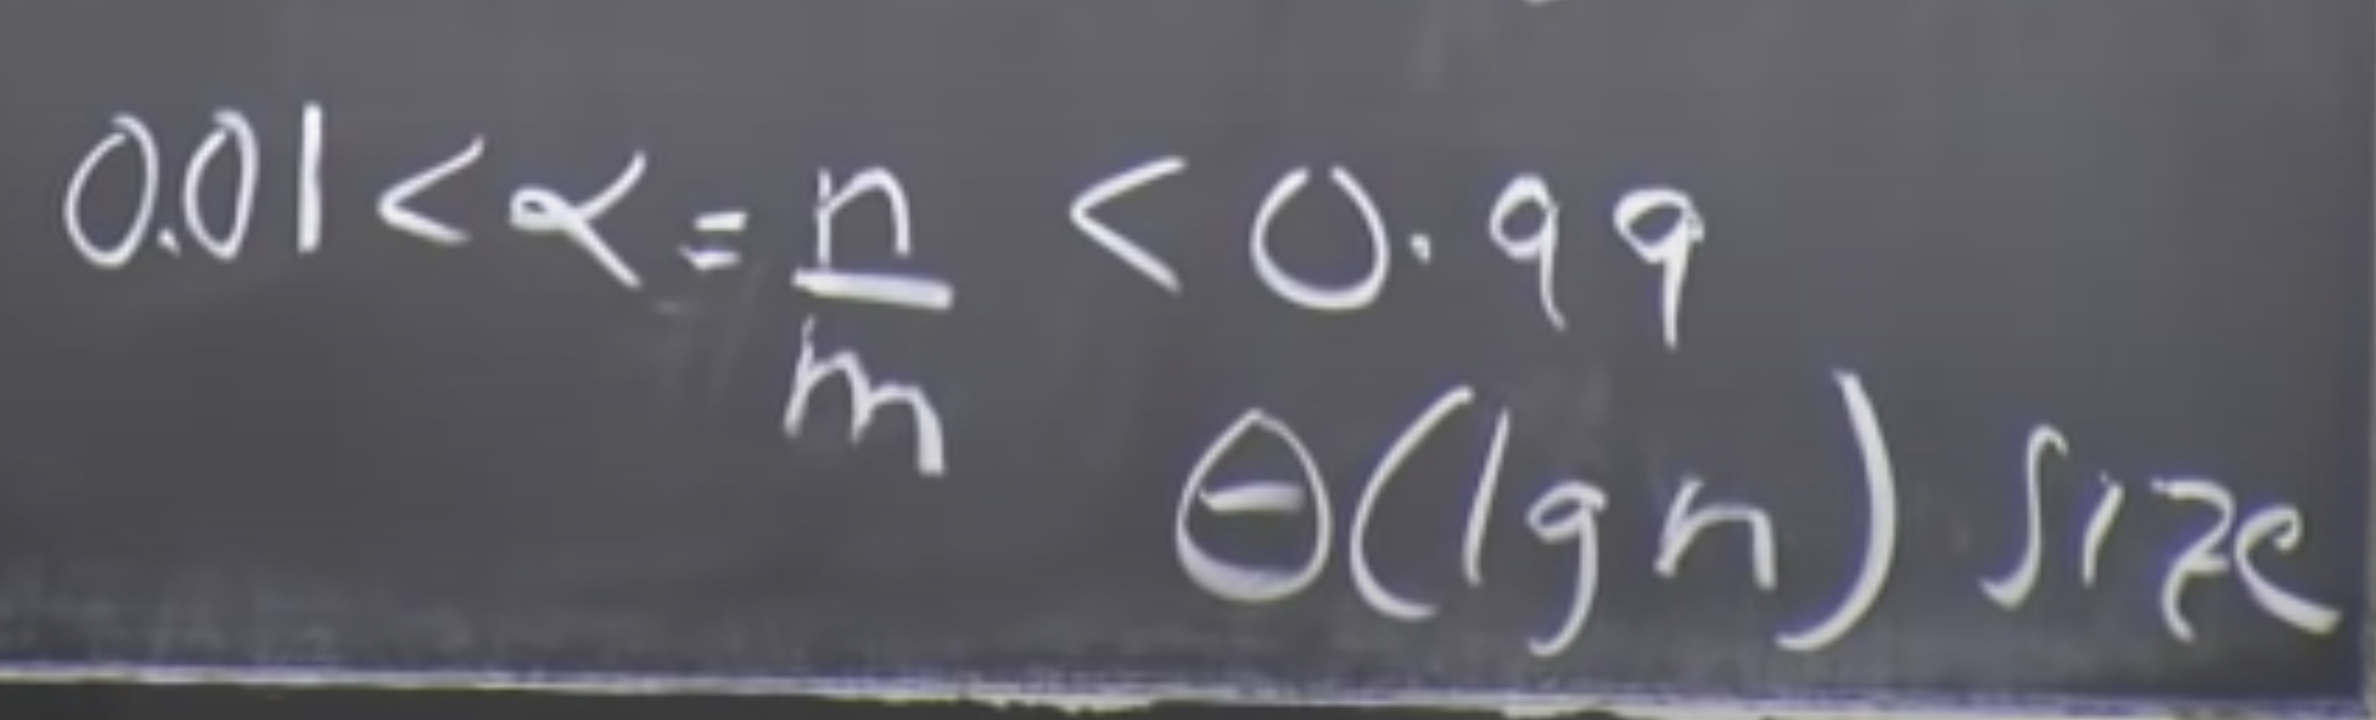 0.01 < α = n/m < 0.99
Θ(lg n) size